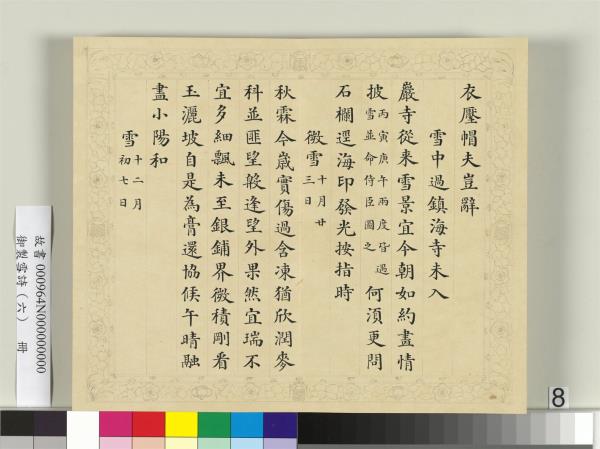 衣壓帽夫豈辭
雪中過鎮海寺未入
巖寺從来雪景宜今朝如約畫情
披丙寅庚午兩度皆遇雪並命侍臣圖之何須更問
石欄邐海印發光按指時
微雪十月廿三日
秋霖今歲實傷過含凍猶欣潤麥
科並匪望殺逢望外果然宜瑞不
宜多細飄未至銀鋪界微積剛看
玉灑坡自是為膏還協候午晴融
盡小陽和
雪十二月初七日
故書 000964N000000000
御製雪詩(六) 冊
8